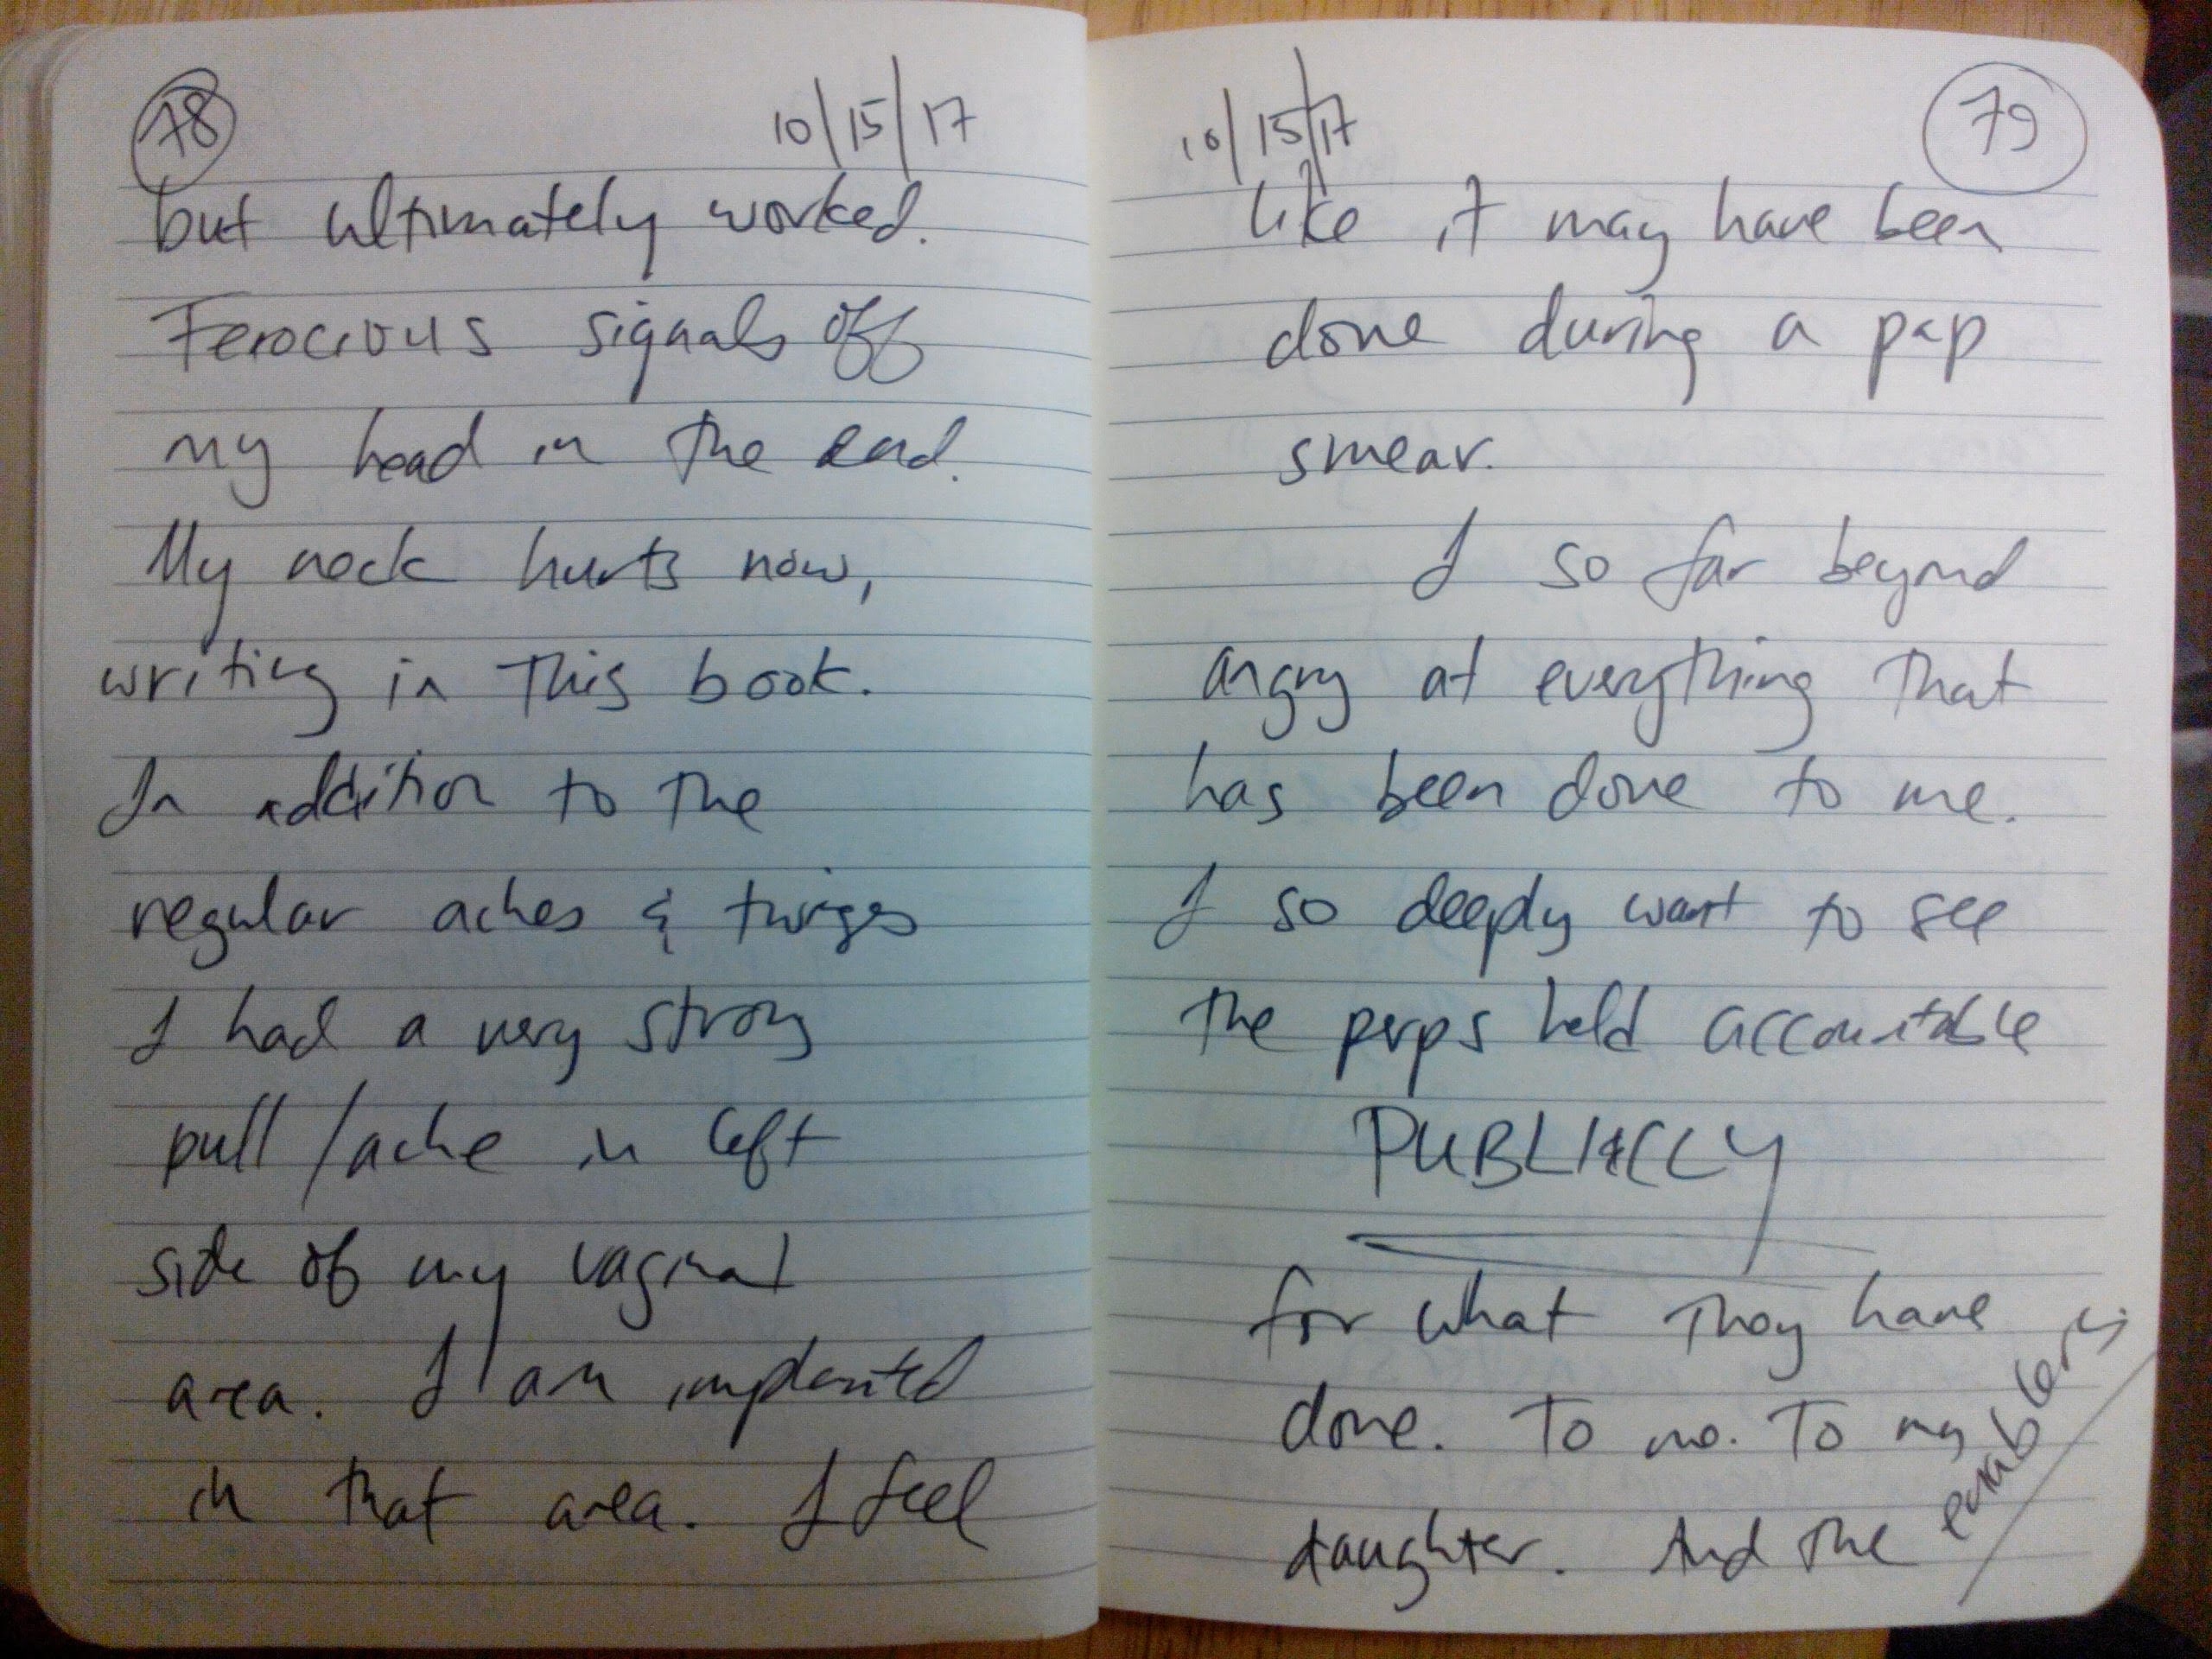 78
10/15/17
but ultimately worked.
Ferocious signals off
my head in the end.
My neck hurts now,
writing in this book.
In addition to the
regular aches & twiges
I had a very strong
pull/ache in left
side of my vaginal
area. I am implanted
in that area. I feel
10/15/17
79
like it may have been
done during a pap
smear.
I so far beyond
angry at everything that
has been done to me.
I so deeply want to see
the perps held accountable
PUBLICLY
for what they have
done. To me. To my
daughter. And the enablers.